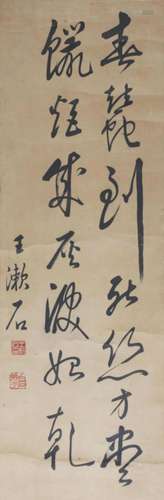 春蠶到死絲方盡
蠟炬成灰淚始乾
王漱石